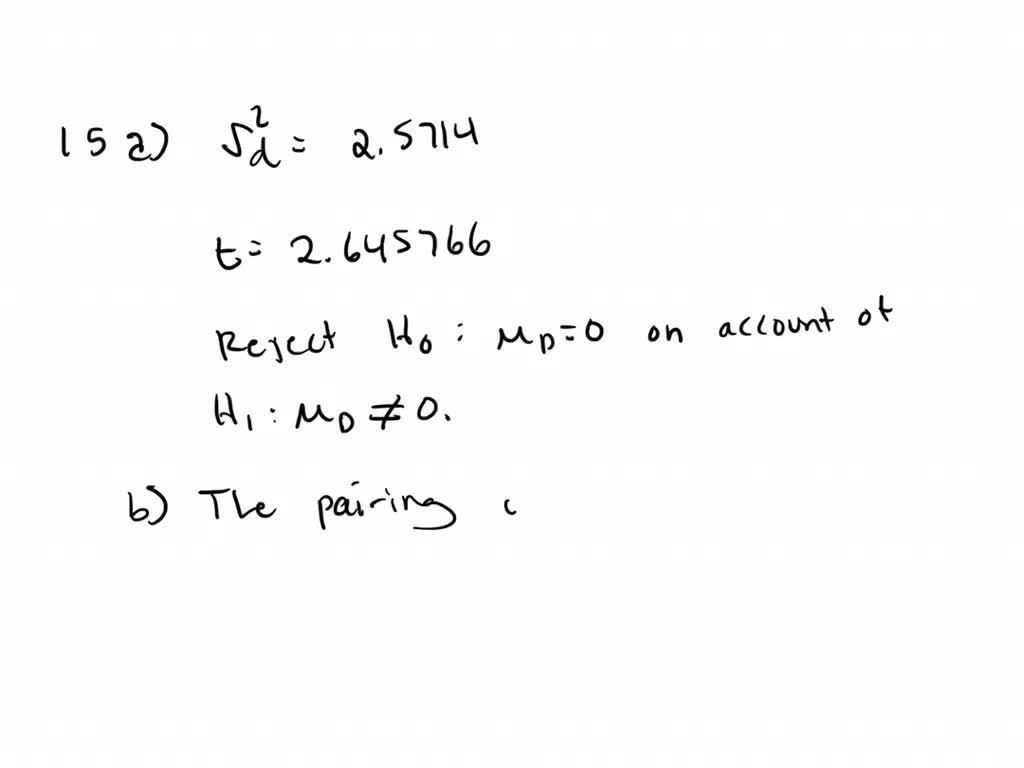 15 a) S²d = 2.5714
t = 2.645766
Reject H₀ : μD=0 on account of
H₁ : μD ≠ 0.
b) The pairing c